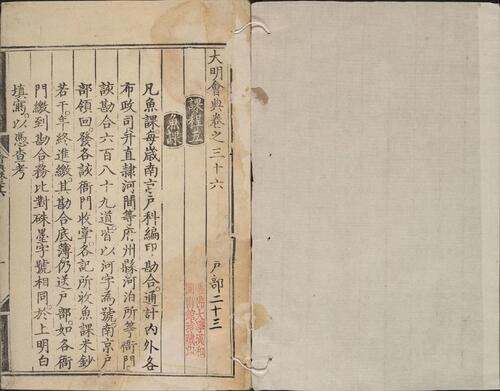 大明會典卷之三十六
戶部二十三
課程五
魚課
凡魚課。每歲南京戶科編印勘合。通計內外各
布政司并直隸河間等府州縣河泊所等衙門
該勘合六百八十九道。皆以河字為號。南京戶
部領回。發各該衙門收掌。各記所收魚課米鈔
若干。年終進繳。其勘合底簿。仍送戶部。如各衙
門繳到勘合。務比對硃墨字號相同。於上明白
填寫。以憑查考